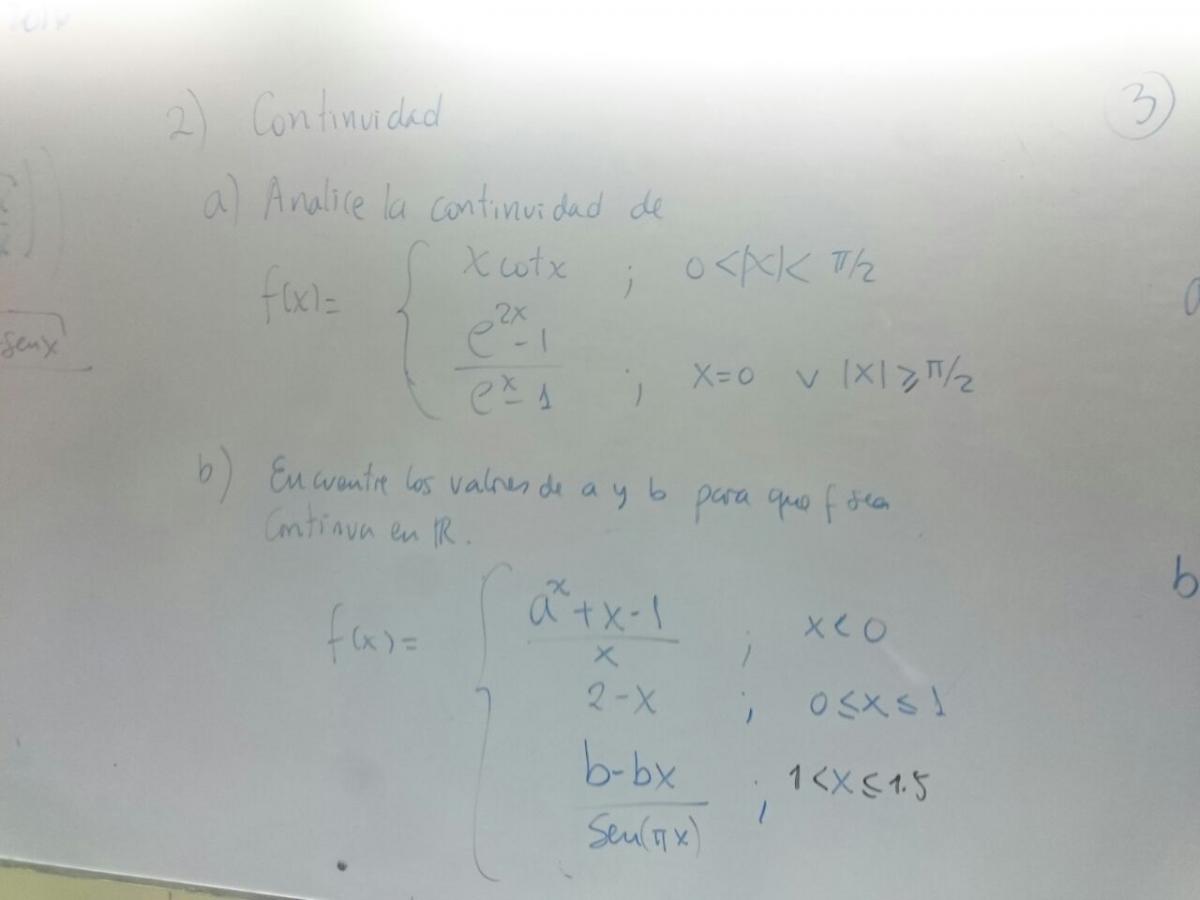 2) Continuidad
3
a) Analice la continuidad de
f(x)= { x cot x ; 0<|x|< π/2
e^2x - 1 / e^x - 1 ; x=0 v |x| ≥ π/2
senx
b) Encuentre los valores de a y b para que f sea
Continua en IR.
b
f(x)= { a^x + x - 1 / x ; x < 0
2-x ; 0 ≤ x ≤ 1
b-bx / Sen(πx) ; 1 < x ≤ 1.5